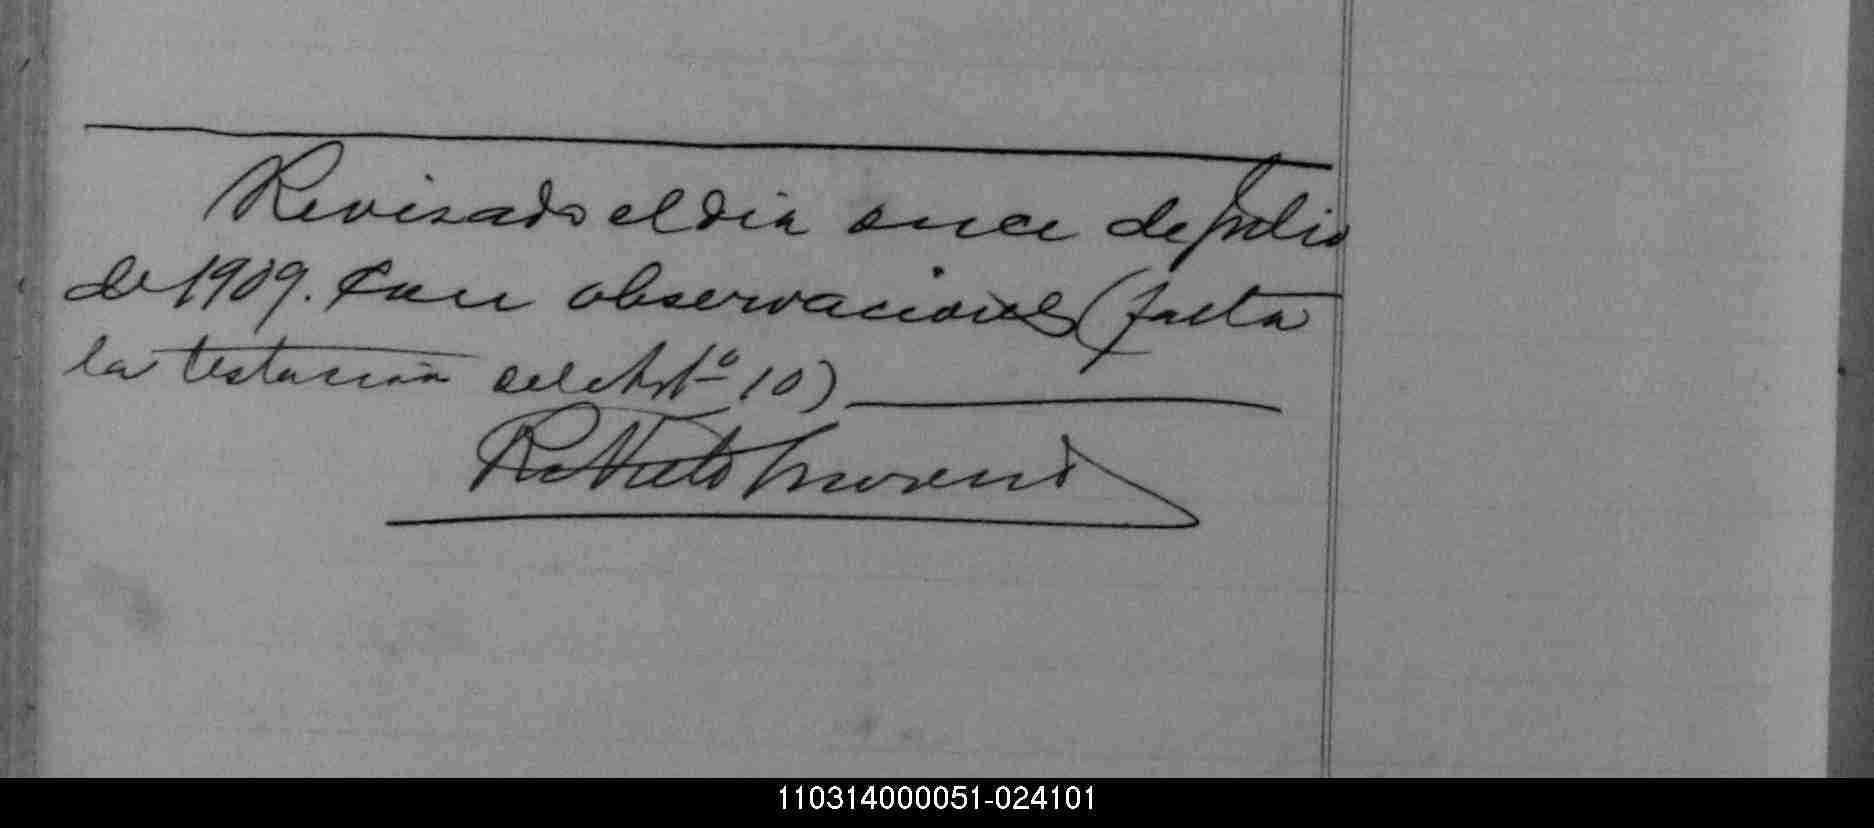 Revisado el dia once de Julio
de 1909. Con observaciones (falta
la testación del 10)
Moreno
110314000051-024101